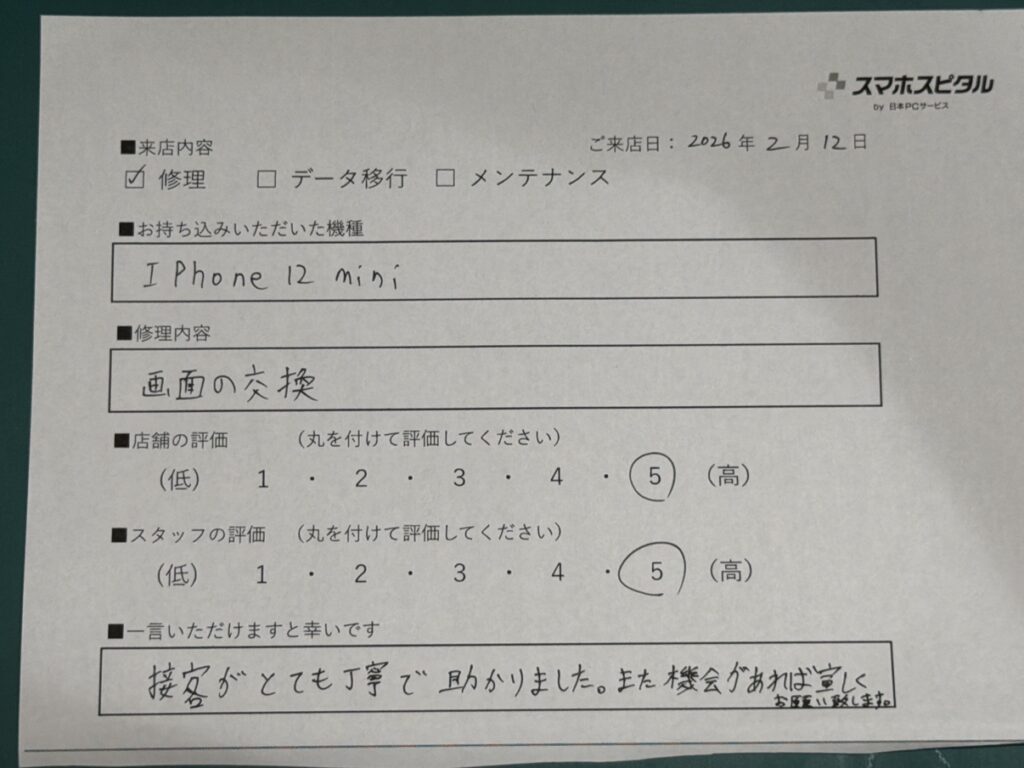 スマホスピタル
by 日本PCサービス
■来店内容
ご来店日： 2026 年 2 月 12 日
☑ 修理 □ データ移行 □ メンテナンス
■お持ち込みいただいた機種
I Phone 12 mini
■修理内容
画面の交換
■店舗の評価 （丸を付けて評価してください）
（低） 1 ・ 2 ・ 3 ・ 4 ・ 5 （高）
■スタッフの評価 （丸を付けて評価してください）
（低） 1 ・ 2 ・ 3 ・ 4 ・ 5 （高）
■一言いただけますと幸いです
接客がとても丁寧で助かりました。また機会があれば宜しく
お願い致します。